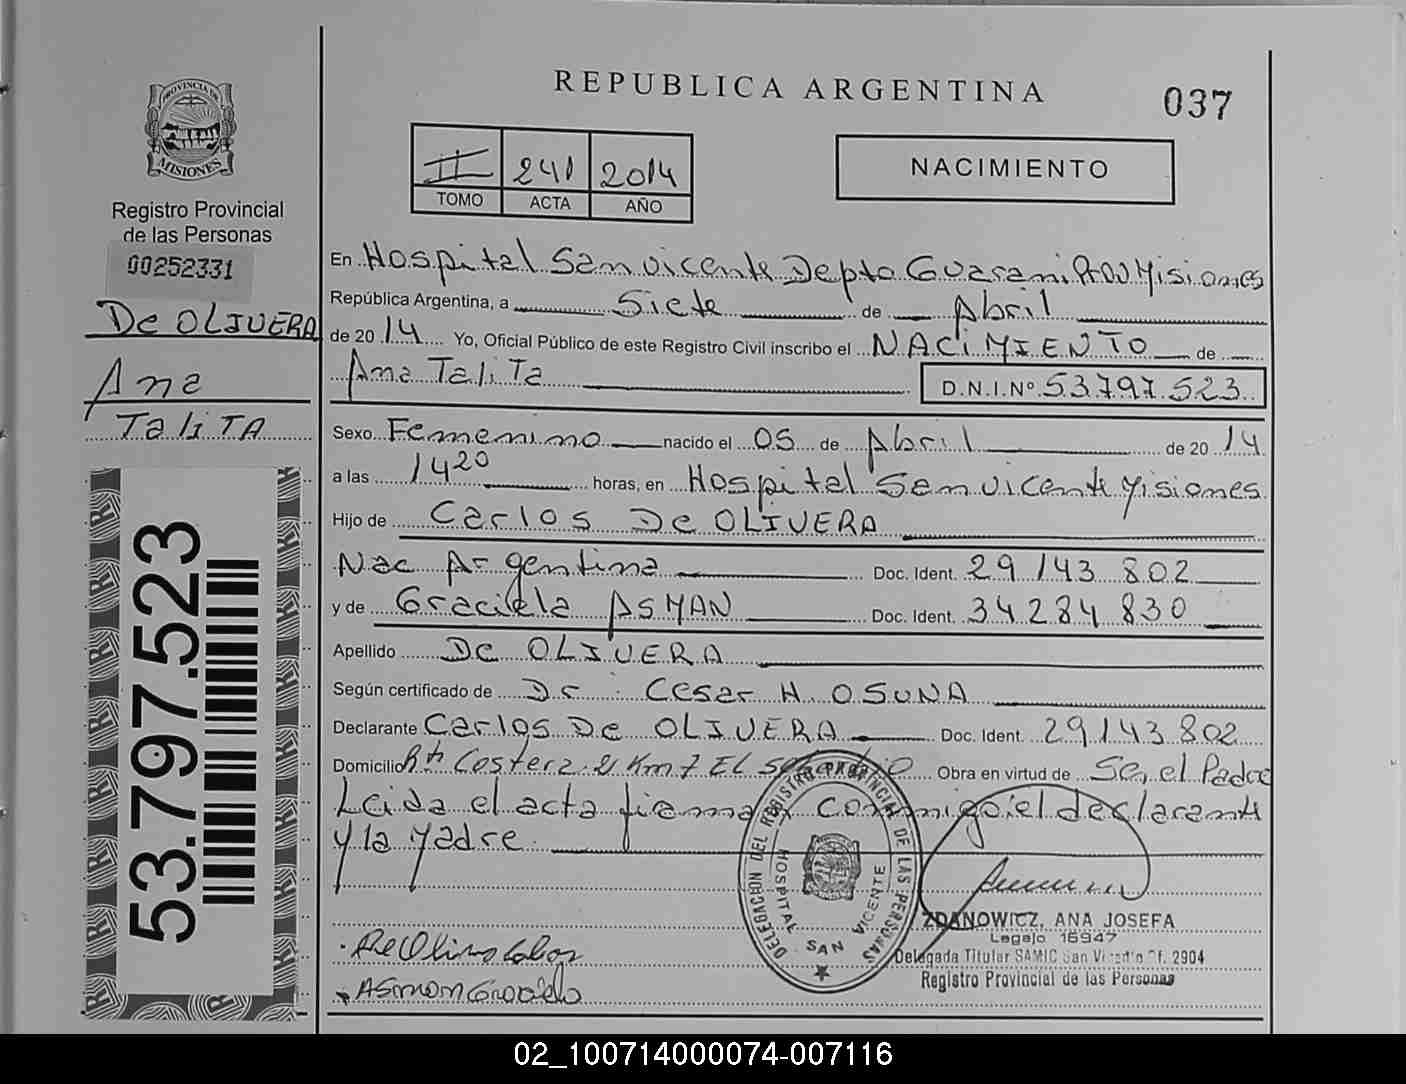 REPUBLICA ARGENTINA
037
PROVINCIA DE
MISIONES
Registro Provincial
de las Personas
00252331
De OLIVERA
Ana
TaliTA
53.797.523
II 241 2014
TOMO ACTA AÑO
NACIMIENTO
En Hospital San vicente Depto Guarani Misiones
República Argentina, a Siete de Abril
de 2014 Yo, Oficial Público de este Registro Civil inscribo el NACIMIENTO de
Ana TaliTa D.N.I.Nº 53.797.523
Sexo Femenino nacido el 05 de Abril de 2014
a las 14 20 horas, en Hospital San vicente Misiones
Hijo de Carlos De OLIVERA
Nac Argentina Doc. Ident. 29 143 802
y de Graciela ASMAN Doc. Ident. 34 284 830
Apellido De OLIVERA
Según certificado de Dr Cesar H OSUNA
Declarante Carlos De OLIVERA Doc. Ident. 29143802
Domicilio Costera Km 7 EL Obra en virtud de Ser el Padre
Leida el acta firman conmigo el declarante
y la Madre
DELEGACION DEL REGISTRO PROVINCIAL DE LAS PERSONAS
HOSPITAL SAN VICENTE
ZDANOWICZ, ANA JOSEFA
Legajo 16947
Delegada Titular SAMIC San Vicente Of. 2904
Registro Provincial de las Personas
De Olivera Carlos
Asman Graciela
02_100714000074-007116